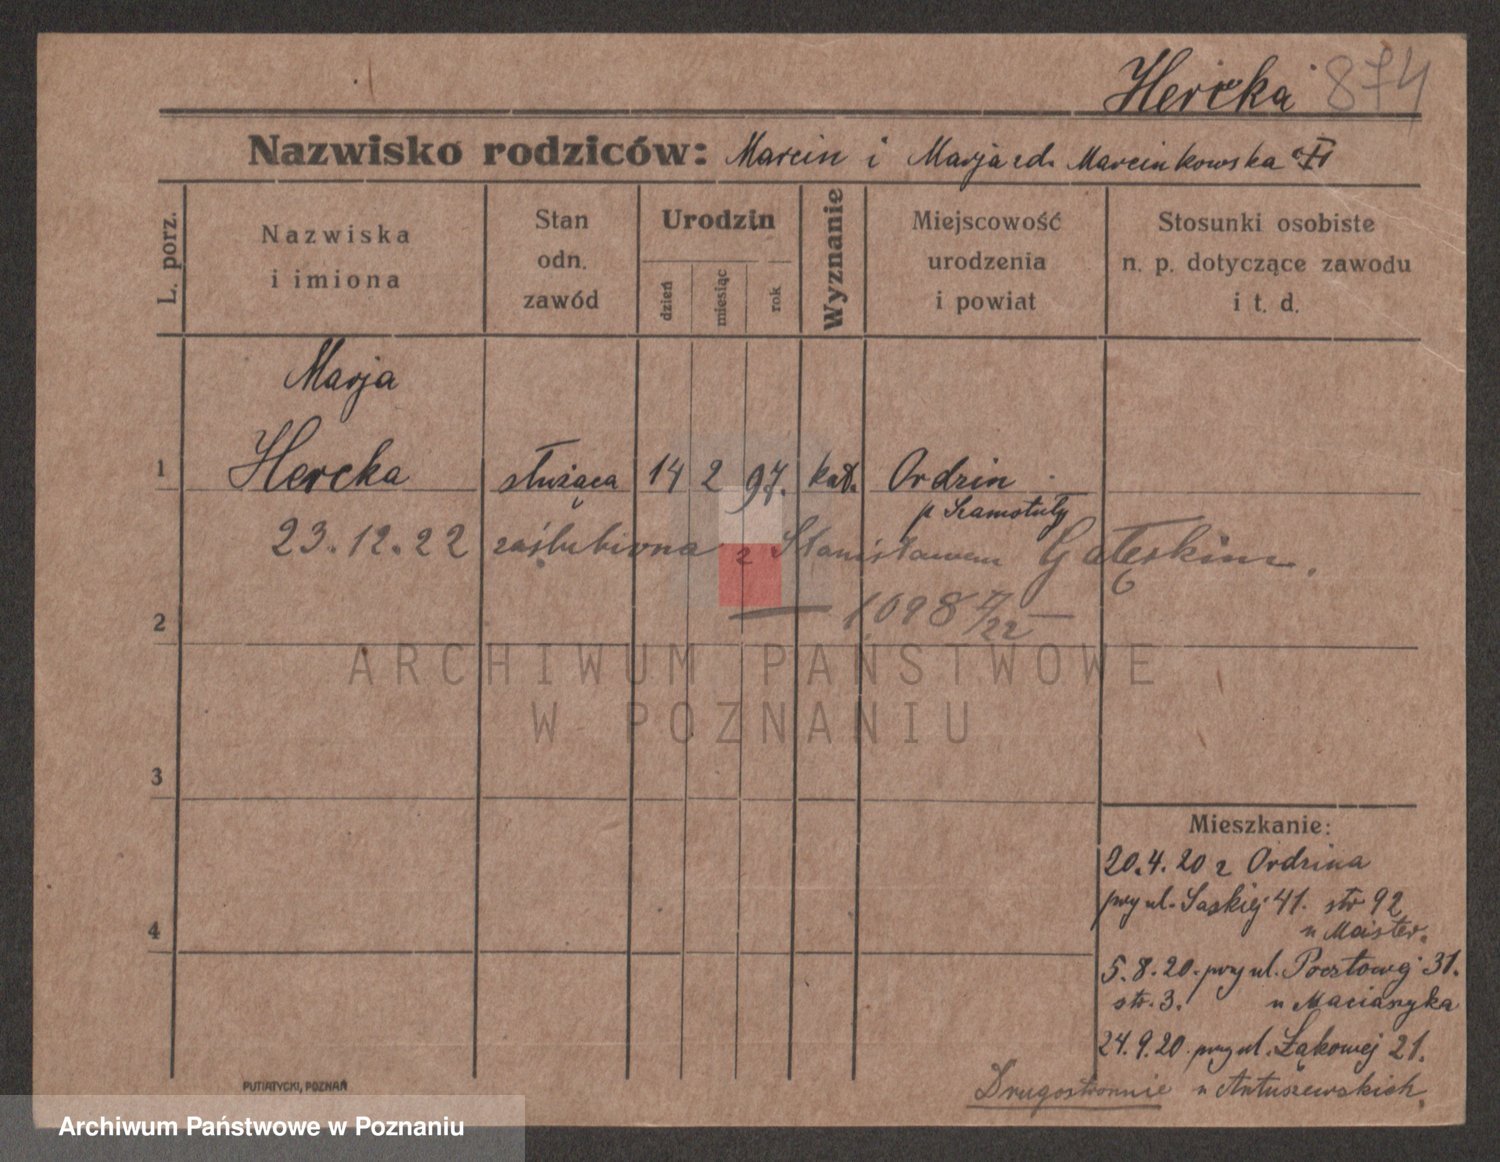 Hercka 874
Nazwisko rodziców: Marcin i Marja zd. Marcinkowska
L. porz.
Nazwiska
i imiona
Stan
odn.
zawód
Urodzin
dzień
miesiąc
rok
Wyznanie
Miejscowość
urodzenia
i powiat
Stosunki osobiste
n. p. dotyczące zawodu
i t. d.
Marja
1 Hercka służąca 14 2 97. kat. Ordzin
p Szamotuły
23.12.22 zaślubiona z Stanisławem Gałęskim.
2 1098
22
ARCHIWUM PAŃSTWOWE
W POZNANIU
3
4
Mieszkanie:
20.4.20 z Ordzina
przy ul. Saskiej 41. str 92
u Maister.
5.8.20. przy ul. Pocztowej 31.
str. 3. u Maciaszyka
24.9.20 przy ul. Łąkowej 21.
Drugostronnie u Antuszewskich.
PUTIATYCKI, POZNAŃ
Archiwum Państwowe w Poznaniu